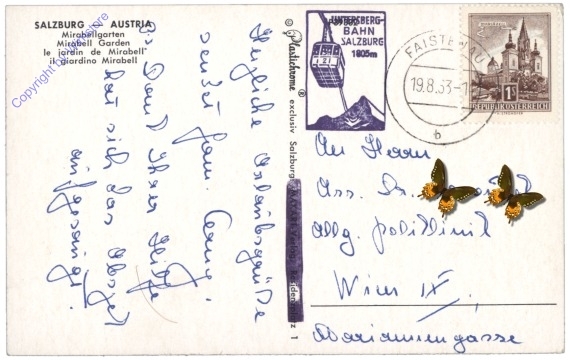 SALZBURG AUSTRIA
Mirabellgarten
Mirabell Garden
le jardin de Mirabell
il giardino Mirabell
Herzliche Urlaubsgrüße
sendet Fam.
Dank Ihrer Hilfe
hat sich das
aufgesaugt!
© Plastichrome® exclusiv Salzburg
UNTERSBERG-
BAHN
SALZBURG
1805m
FAISTENAU
19.8.63-1
b
1S
REPUBLIK ÖSTERREICH
An Herrn
Ass. Dr.
Allg. Poliklinik
Wien IX,
Mariannengasse
Copyright